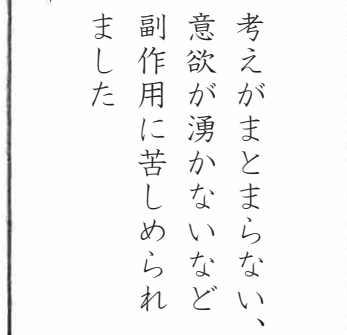 考えがまとまらない、
意欲が湧かないなど
副作用に苦しめられ
ました